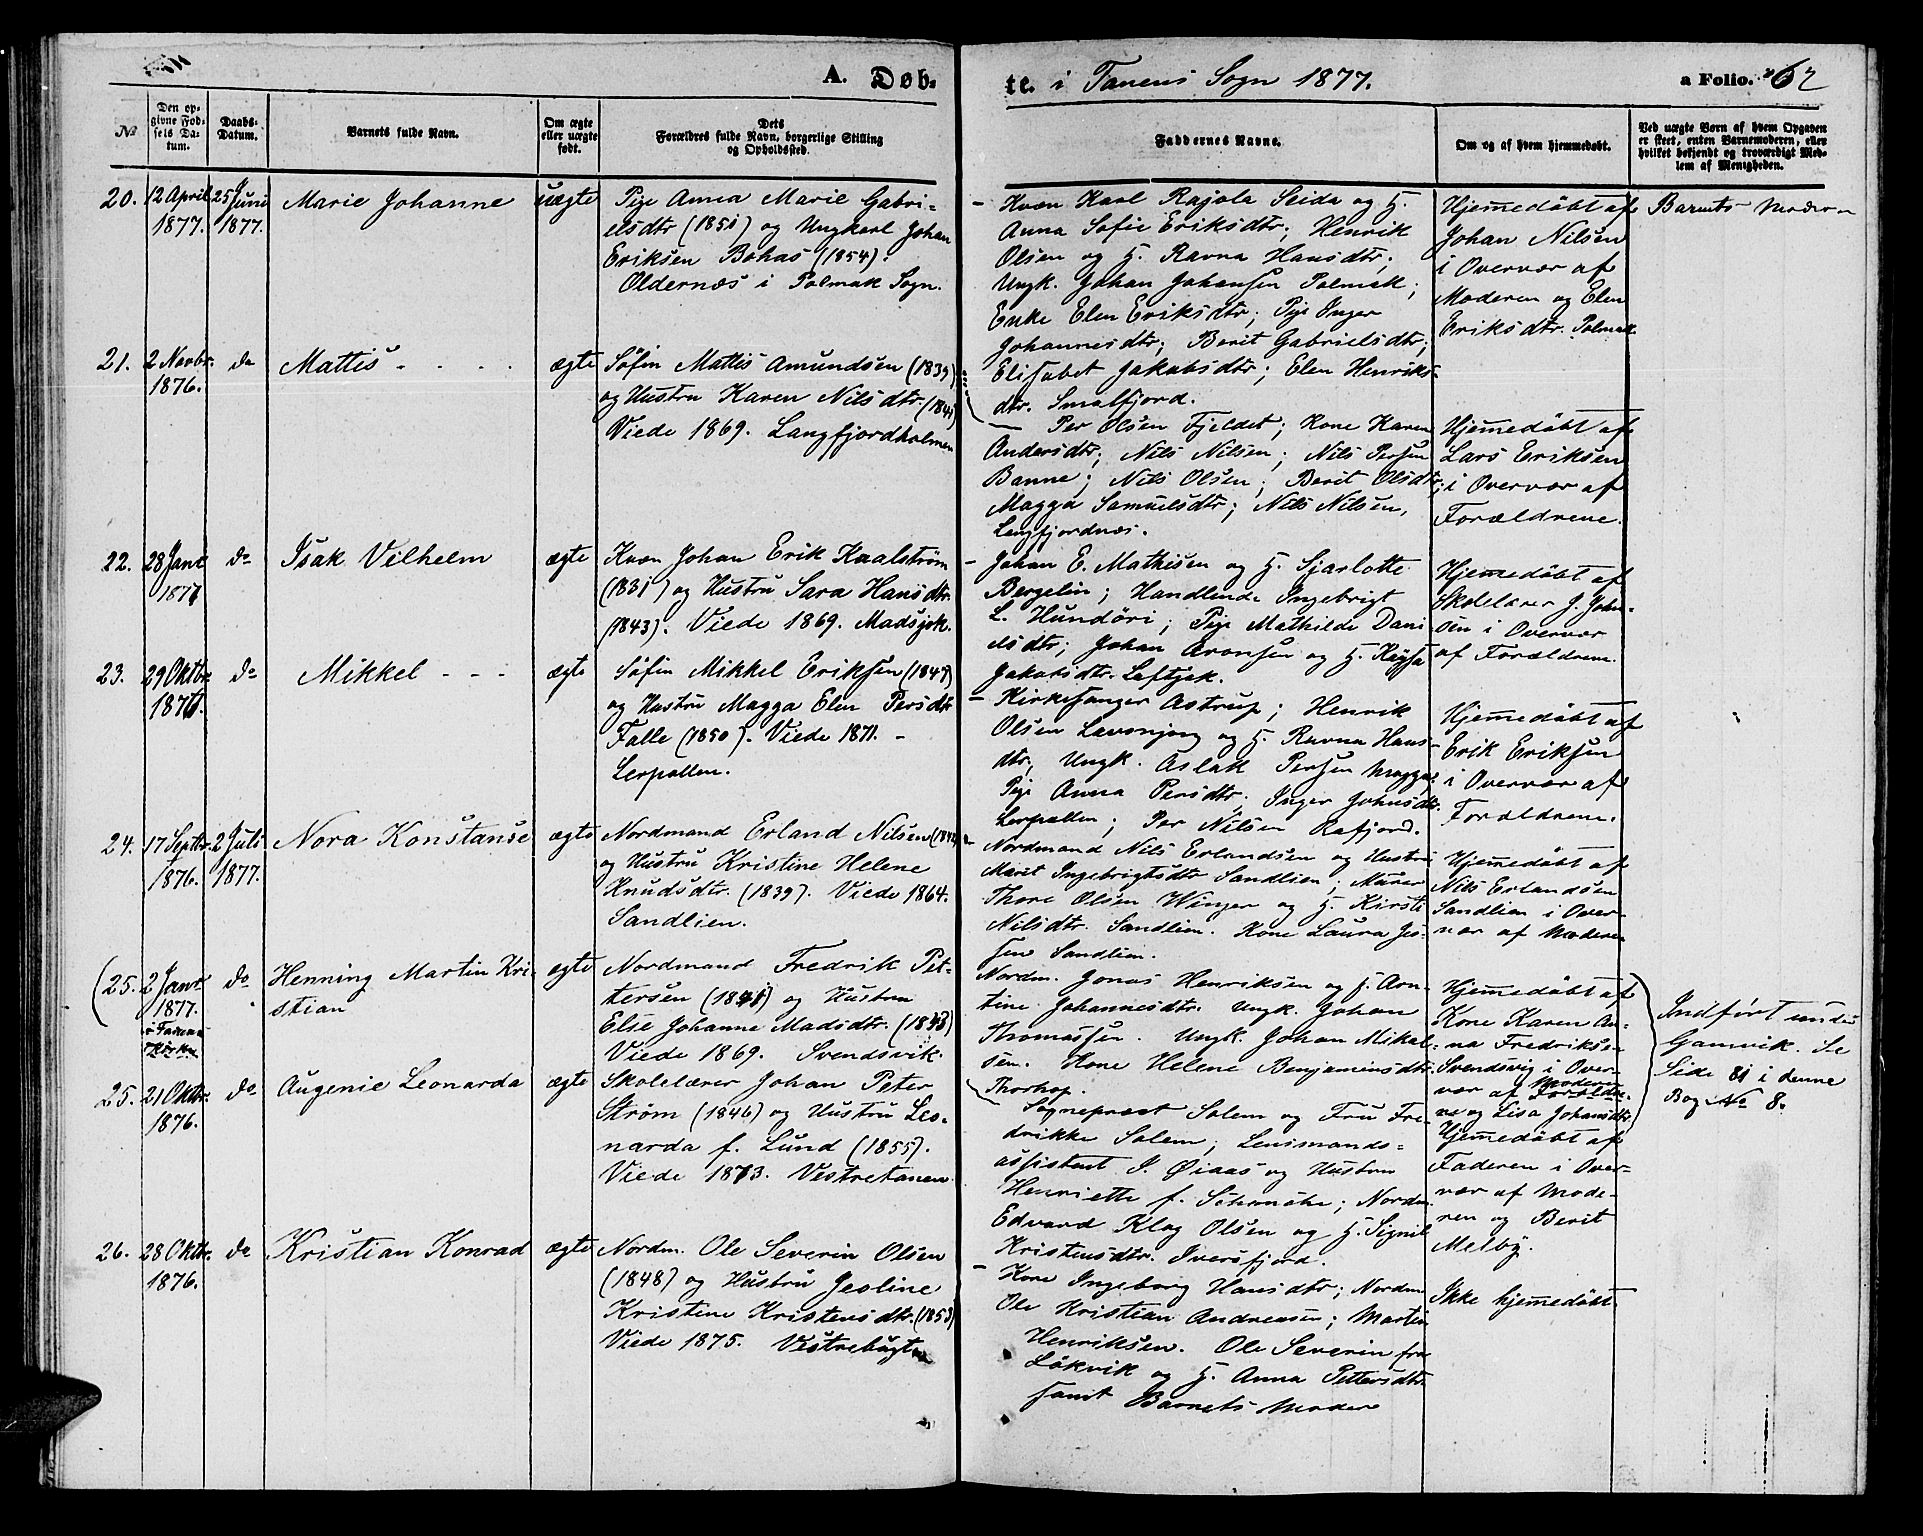 A. Døb-
te. i Tanens Sogn 1877.
a Folio. 62
№
Den op-
givne Fød-
sels Da-
tum.
Daabs-
Datum.
Barnets fulde Navn.
Om ægte
eller uægte
født.
Dets
Forældres fulde Navn, borgerlige Stilling
og Opholdssted.
Faddernes Navne.
Om og af hvem hjemmedøbt.
Ved uægte Børn af hvem Opgaven
er skeet, enten Barnemoderen, eller
hvilket bekjendt og troværdigt Med-
lem af Menigheden.
20.
12 April
1877.
25 Juni
1877.
Marie Johanne
uægte
Pige Anna Marie Gabri-
elsdtr (1851) og Ungkarl Johan
Eriksen Bohas (1854).
Oldernæs i Polmak Sogn.
- Kvæn Karl Rajola Seida og H.
Anna Sofie Eriksdtr; Henrik
Olsen og H. Ravna Hansdtr;
Ungk. Johan Johansen Polmak;
Enke Elen Eriksdtr; Pige Inger
Johannesdtr; Berit Gabrielsdtr;
Elisabet Jakobsdtr; Elen Henriks-
dtr. Smalfjord.
Hjemmedöbt af
Johan Nilsen
i Overvær af
Moderen og Elen
Eriksdtr. Polmak
Barnets Moder
21.
2 Novbr.
1876.
do
Mattis - - - -
ægte
Söfin Mattis Amundsen (1839)
og Hustru Karen Nilsdtr. (1841)
Viede 1869. Langfjordholmen
- Per Olsen Fjeldet; Kone Karen
Andersdtr; Nils Nilsen; Nils Persen
Banne; Nils Olsen; Berit Olsdtr;
Magga Samuelsdtr; Nils Nilsen,
Langfjordnæs.
Hjemmedöbt af
Lars Eriksen
i Overvær af
Forældrene.
22.
28 Janr
1877
do
Isak Vilhelm
ægte
Kvæn Johan Erik Kaalström
(1831) og Hustru Sara Hansdtr.
(1843). Viede 1869. Madsjok.
- Johan E. Mathisen og H. Sjarlotte
Bergelin; Handlende Ingebrigt
L. Hundöri; Pige Mathilde Dani
elsdtr; Johan Aronsen og H. Kajsa
Jakobsdtr. Leftjok.
Hjemmedöbt af
Skolelærer J. John-
sen i Overvær
af Forældrene.
23.
29 Oktbr.
1876.
do
Mikkel - - -
ægte
Söfin Mikkel Eriksen (1847)
og Hustru Magga Elen Persdtr
Falle (1850). Viede 1871. -
Lerpollen.
- Kirkesanger Astrup; Henrik
Olsen Lavonjorg og H. Ravna Hans-
dtr; Ungk. Aslak Persen Magga;
Pige Anna Persdtr; Inger Johnsdtr.
Lerpollen; Per Nilsen Rafjord.
Hjemmedöbt af
Erik Eriksen
i Overvær af
Forældrene.
24.
17 Septbr.
1876.
2 Juli
1877.
Nora Konstanse
ægte
Nordmand Erland Nilsen
og Hustru Kristine Helene
Knudsdtr. (1839). Viede 1864.
Sandlien.
Nordmand Nils Erlandsen og Hustru
Maret Ingebrigtsdtr Sandlien; Murer
Thore Olsen Winger og H. Kirsti
Nilsdtr. Sandlien. Kone Laura Jes-
sen Sandlien.
Hjemmedöbt af
Nils Erlandsen
Sandlien i Over-
vær af Moderen
(25.
2 Janr.
1877.
do
Henning Martin Kri-
stian
ægte
Nordmand Fredrik Pet-
tersen (1841) og Hustru
Else Johanne Madsdtr. (1843)
Viede 1869. Svendsvik
Nordm. Jonas Henriksen og H. Arn-
tine Johannesdtr. Ungk. Johan
Thomassen. Ungk. Johan Mikal-
sen. Kone Helene Benjaminsdtr.
Thorhop.
Hjemmedöbt af
Kone Karen An-
na Fredriksen
Svendsvig i Over-
vær af Moderen
og Lisa Johansdtr.
Indført under
Gamvik. Se
Side 81 i denne
Bog No 8.
25.
21 Oktbr.
1876.
do
Augenie Leonarda
ægte
Skolelærer Johan Peter
Ström (1846) og Hustru Leo-
narda f. Lund (1855).
Viede 1873. Vestretanen.
Sognepræst Solem og Fru Fre-
drikke Solem; Lensmands-
assistent I. Öiaas og Hustru
Henriette f. Schanche; Nordm.
Edvard Klog Olsen og H. Signil
Kristensdtr. Iversfjord.
Hjemmedöbt af
Faderen i Over-
vær af Mode-
ren og Berit
Melby.
26.
28 Oktbr.
1876.
do
Kristian Konrad
ægte
Nordm. Ole Severin Olsen
(1848) og Hustru Jeoline
Kristene Kristensdtr. (1853)
Viede 1875. Vestrebugten
- Kone Ingeborg Hansdtr; Nordm.
Ole Kristian Andreasen; Martin
Henriksen. Ole Severin fra
Lökvik og H. Anna Pettersdtr.
samt Barnets Moder
Ikke hjemmedöbt.